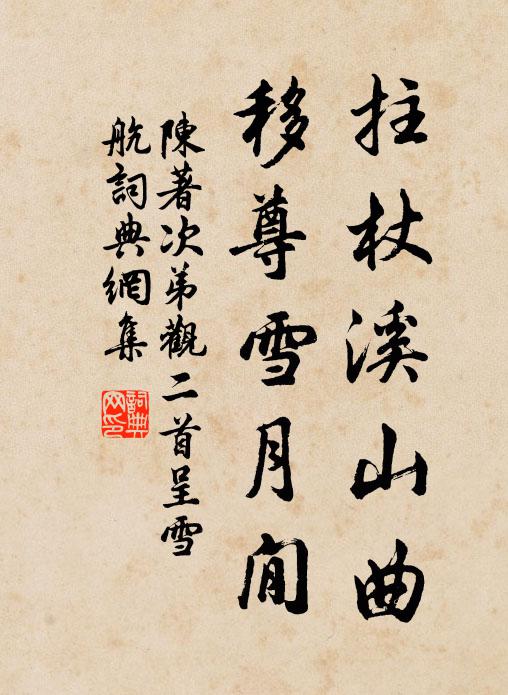 拄杖溪山曲
移尊雪月閒
陳著次弟觀二首呈雪
航詞典網集
詞典
网印